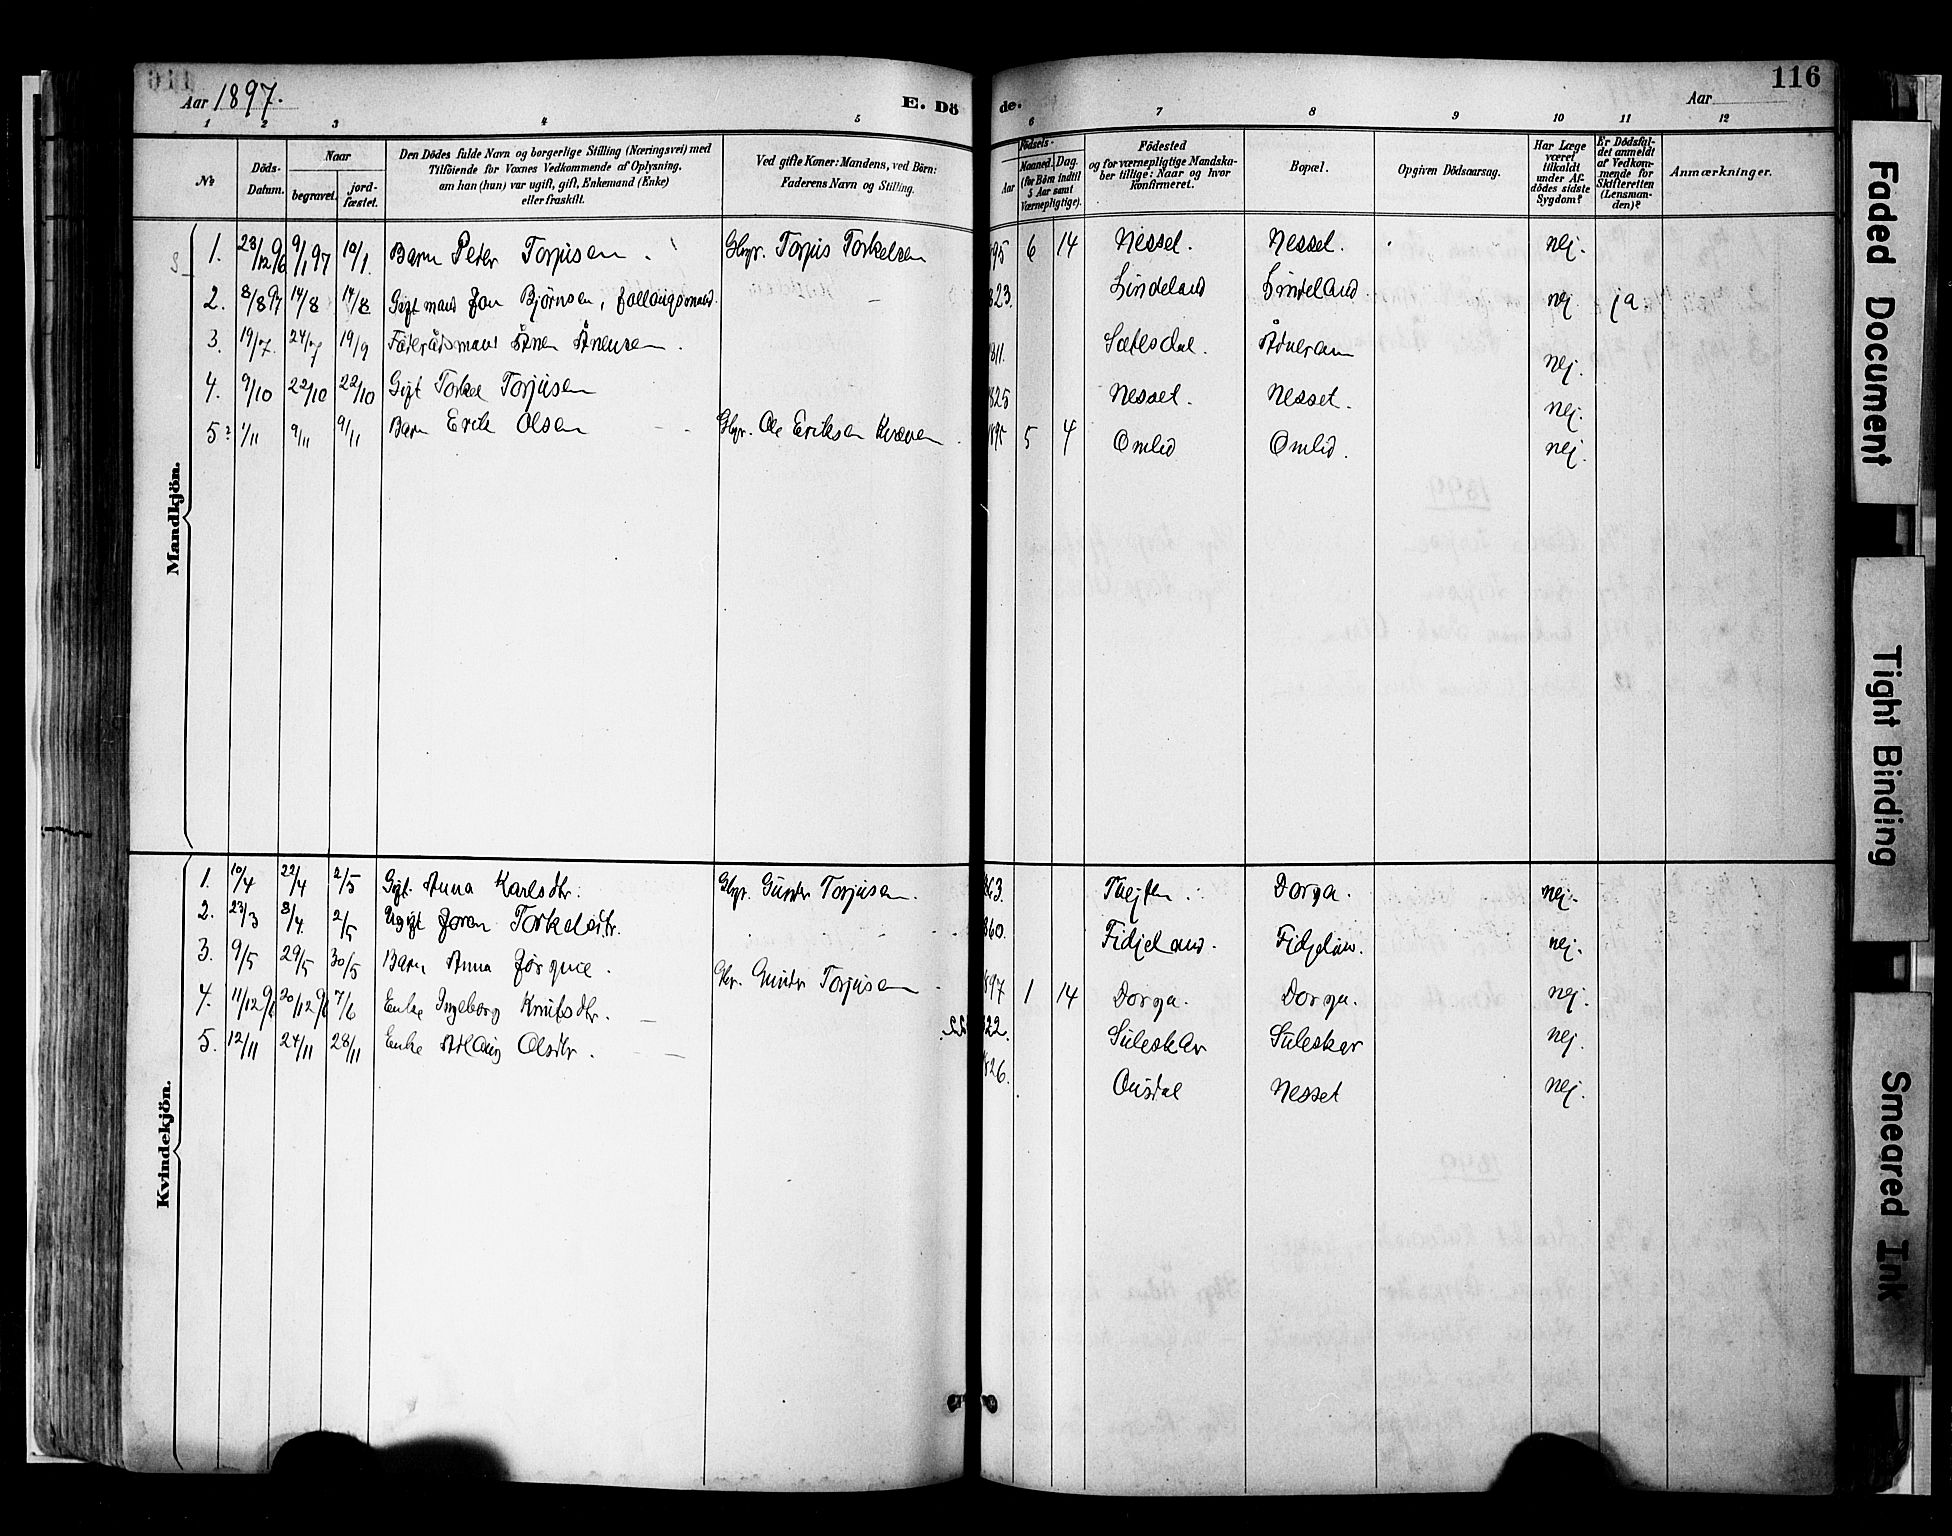 Aar 1897.
E. Dö
de.
Aar
116
1 2 3 4 5 6 7 8 9 10 11 12
No
Döds-Datum.
Naar
begravet.
jord-fæstet.
Den Dödes fulde Navn og borgerlige Stilling (Næringsvei) med
Tilföiende for Voxnes Vedkommende af Oplysning,
om han (hun) var ugift, gift, Enkemand (Enke)
eller fraskilt.
Ved gifte Koner: Mandens, ved Börn:
Faderens Navn og Stilling.
Födsels-
Aar
Maaned. Dag.
(for Börn indtil
5 Aar samt
Værnepligtige).
Födested
og for værnepligtige Mandska-
ber tillige: Naar og hvor
konfirmeret.
Bopæl.
Opgiven Dödsaarsag.
Har Læge
været
tilkaldt
under Af-
dödes sidste
Sygdom?
Er Dödsfal-
det anmeldt
af Vedkom-
mende for
Skifteretten
(Lensman-
den)?
Anmærkninger.
Mandkjön.
1. 23/12 96 9/1 97 10/1. Barn Peter Torjusen. Gbgr. Torjus Torkelsen 895 6 14 Nesset. Nesset. nej.
2. 8/8 97 14/8 14/8 Gift mand Jon Bjørnsen, 823. Lindeland Lindeland nej ja
3. 19/7. 24/7 19/9 Føderådsmand Ånen Ånensen. 811. Sætesdal. Ådneram nej.
4. 9/10 22/10 22/10 Gift Torkel Torjusen 825 Nesset. Nesset. nej.
5. 1/11 9/11 9/11 Barn Erik Olsen Gbgr. Ole Eriksen Kvæven. 895 5 4 Omlid Omlid. nej.
Kvindekjön.
1. 10/4 22/4 2/5 Gift. Anna Karlsdtr. Gbgr. Gunder Torjusen. 863. Dorga. nej.
2. 23/3 3/4. 2/5 Ugift Joren Torkelsdtr. 860. Fidjeland. Fidjeland. nej.
3. 9/5 29/5 30/5 Barn Anna Jørgine. Gbr. Gunder Torjusen 897 1 14 Dorga. Dorga. nej.
4. 11/12 96 20/12 96 7/6 Enke Ingeborg Knutsdtr. 822. Suleskar Suleskar nej.
5. 12/11 24/11 28/11 Enke Aslaug Olsdtr. 826. Ousdal Nesset nej.
Faded Document
Tight Binding
Smeared Ink